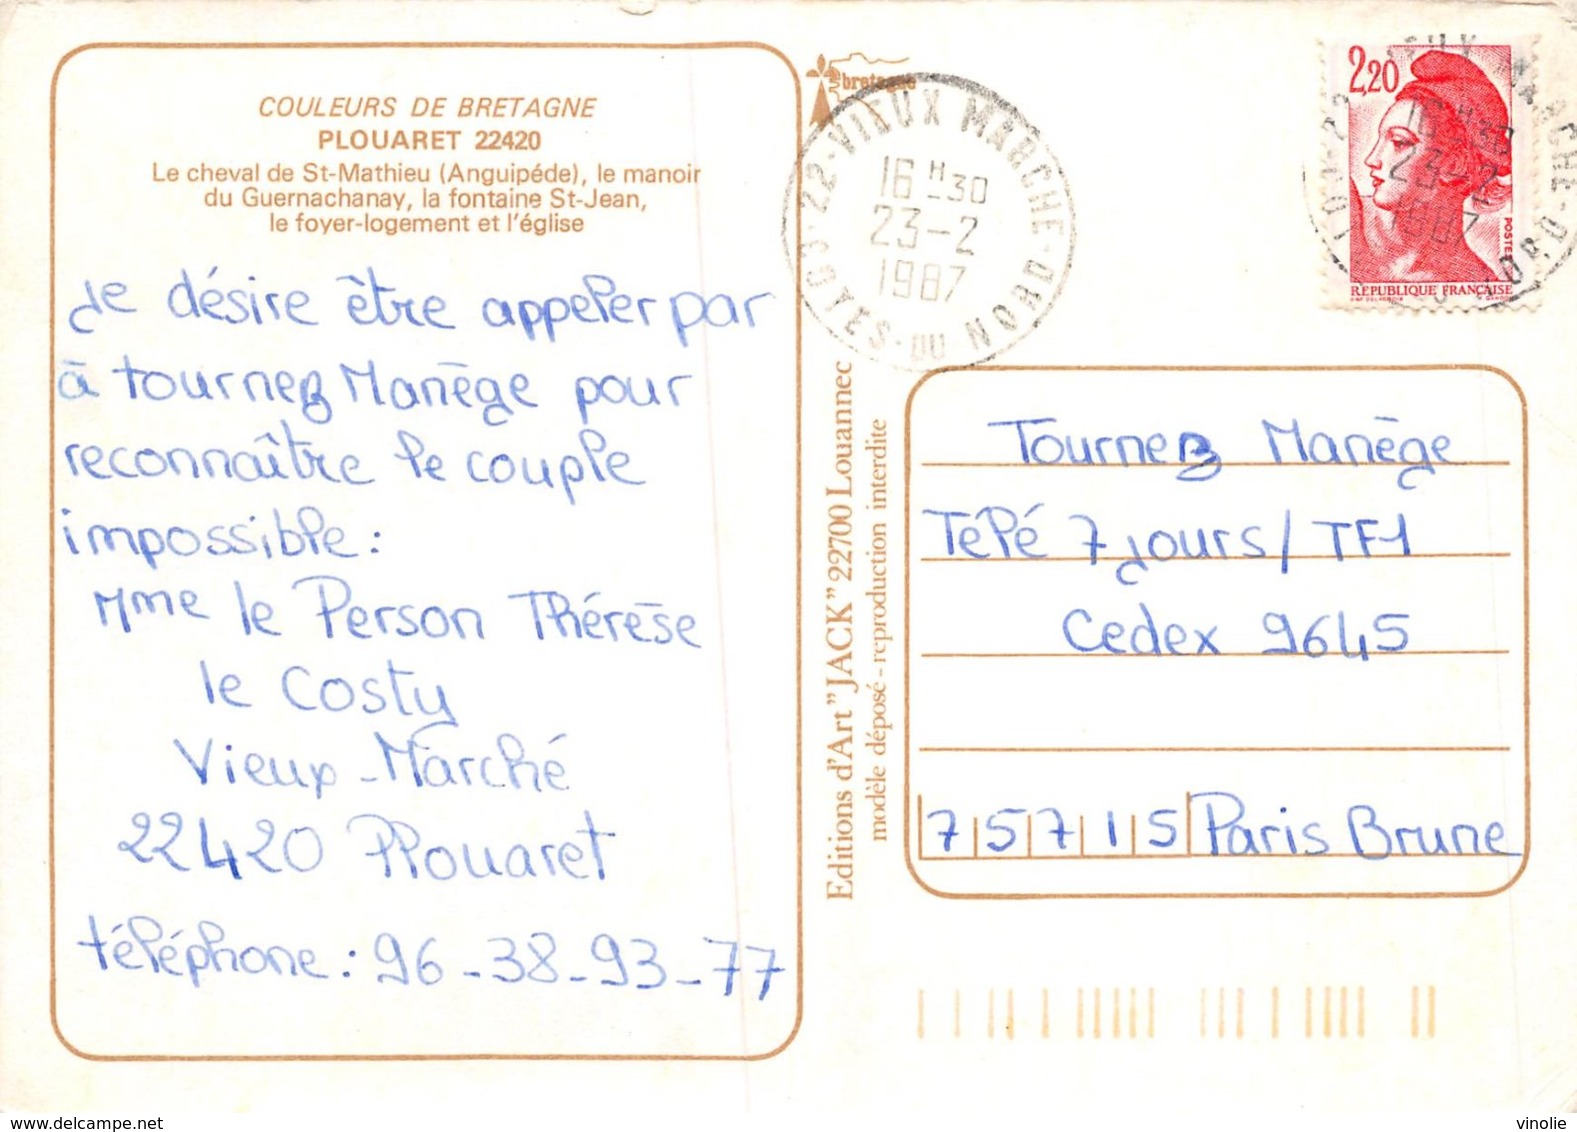 COULEURS DE BRETAGNE
PLOUARET 22420
Le cheval de St-Mathieu (Anguipéde), le manoir
du Guernachanay, la fontaine St-Jean,
le foyer-logement et l'église
Je désire être appeler par
à tournez Manège pour
reconnaître le couple
impossible :
Mme le Person Thérèse
le Costy
Vieux-Marché
22420 Plouaret
téléphone : 96-38-93-77
bretagne
22-VIEUX MARCHE-DRD
COTES-DU NORD
16 H-30
23-2
1987
Editions d'Art "JACK" 22700 Louannec
modèle déposé - reproduction interdite
2,20
POSTES
REPUBLIQUE FRANÇAISE
16 H 30
23-2
1987
Tournez Manège
Télé 7 jours / TF1
Cedex 9645
75715 Paris Brune
delcampe.net
vinolie